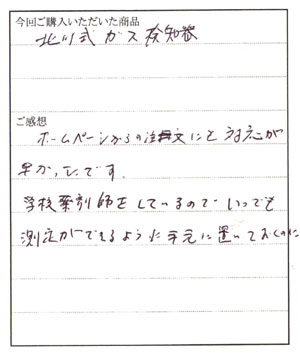 今回ご購入いただいた商品
北川式 ガス検知器
ご感想
ホームページからの注文にも対応が
早かったです。
学校薬剤師をしているので いつでも
測定ができるように手元に置いておくのに